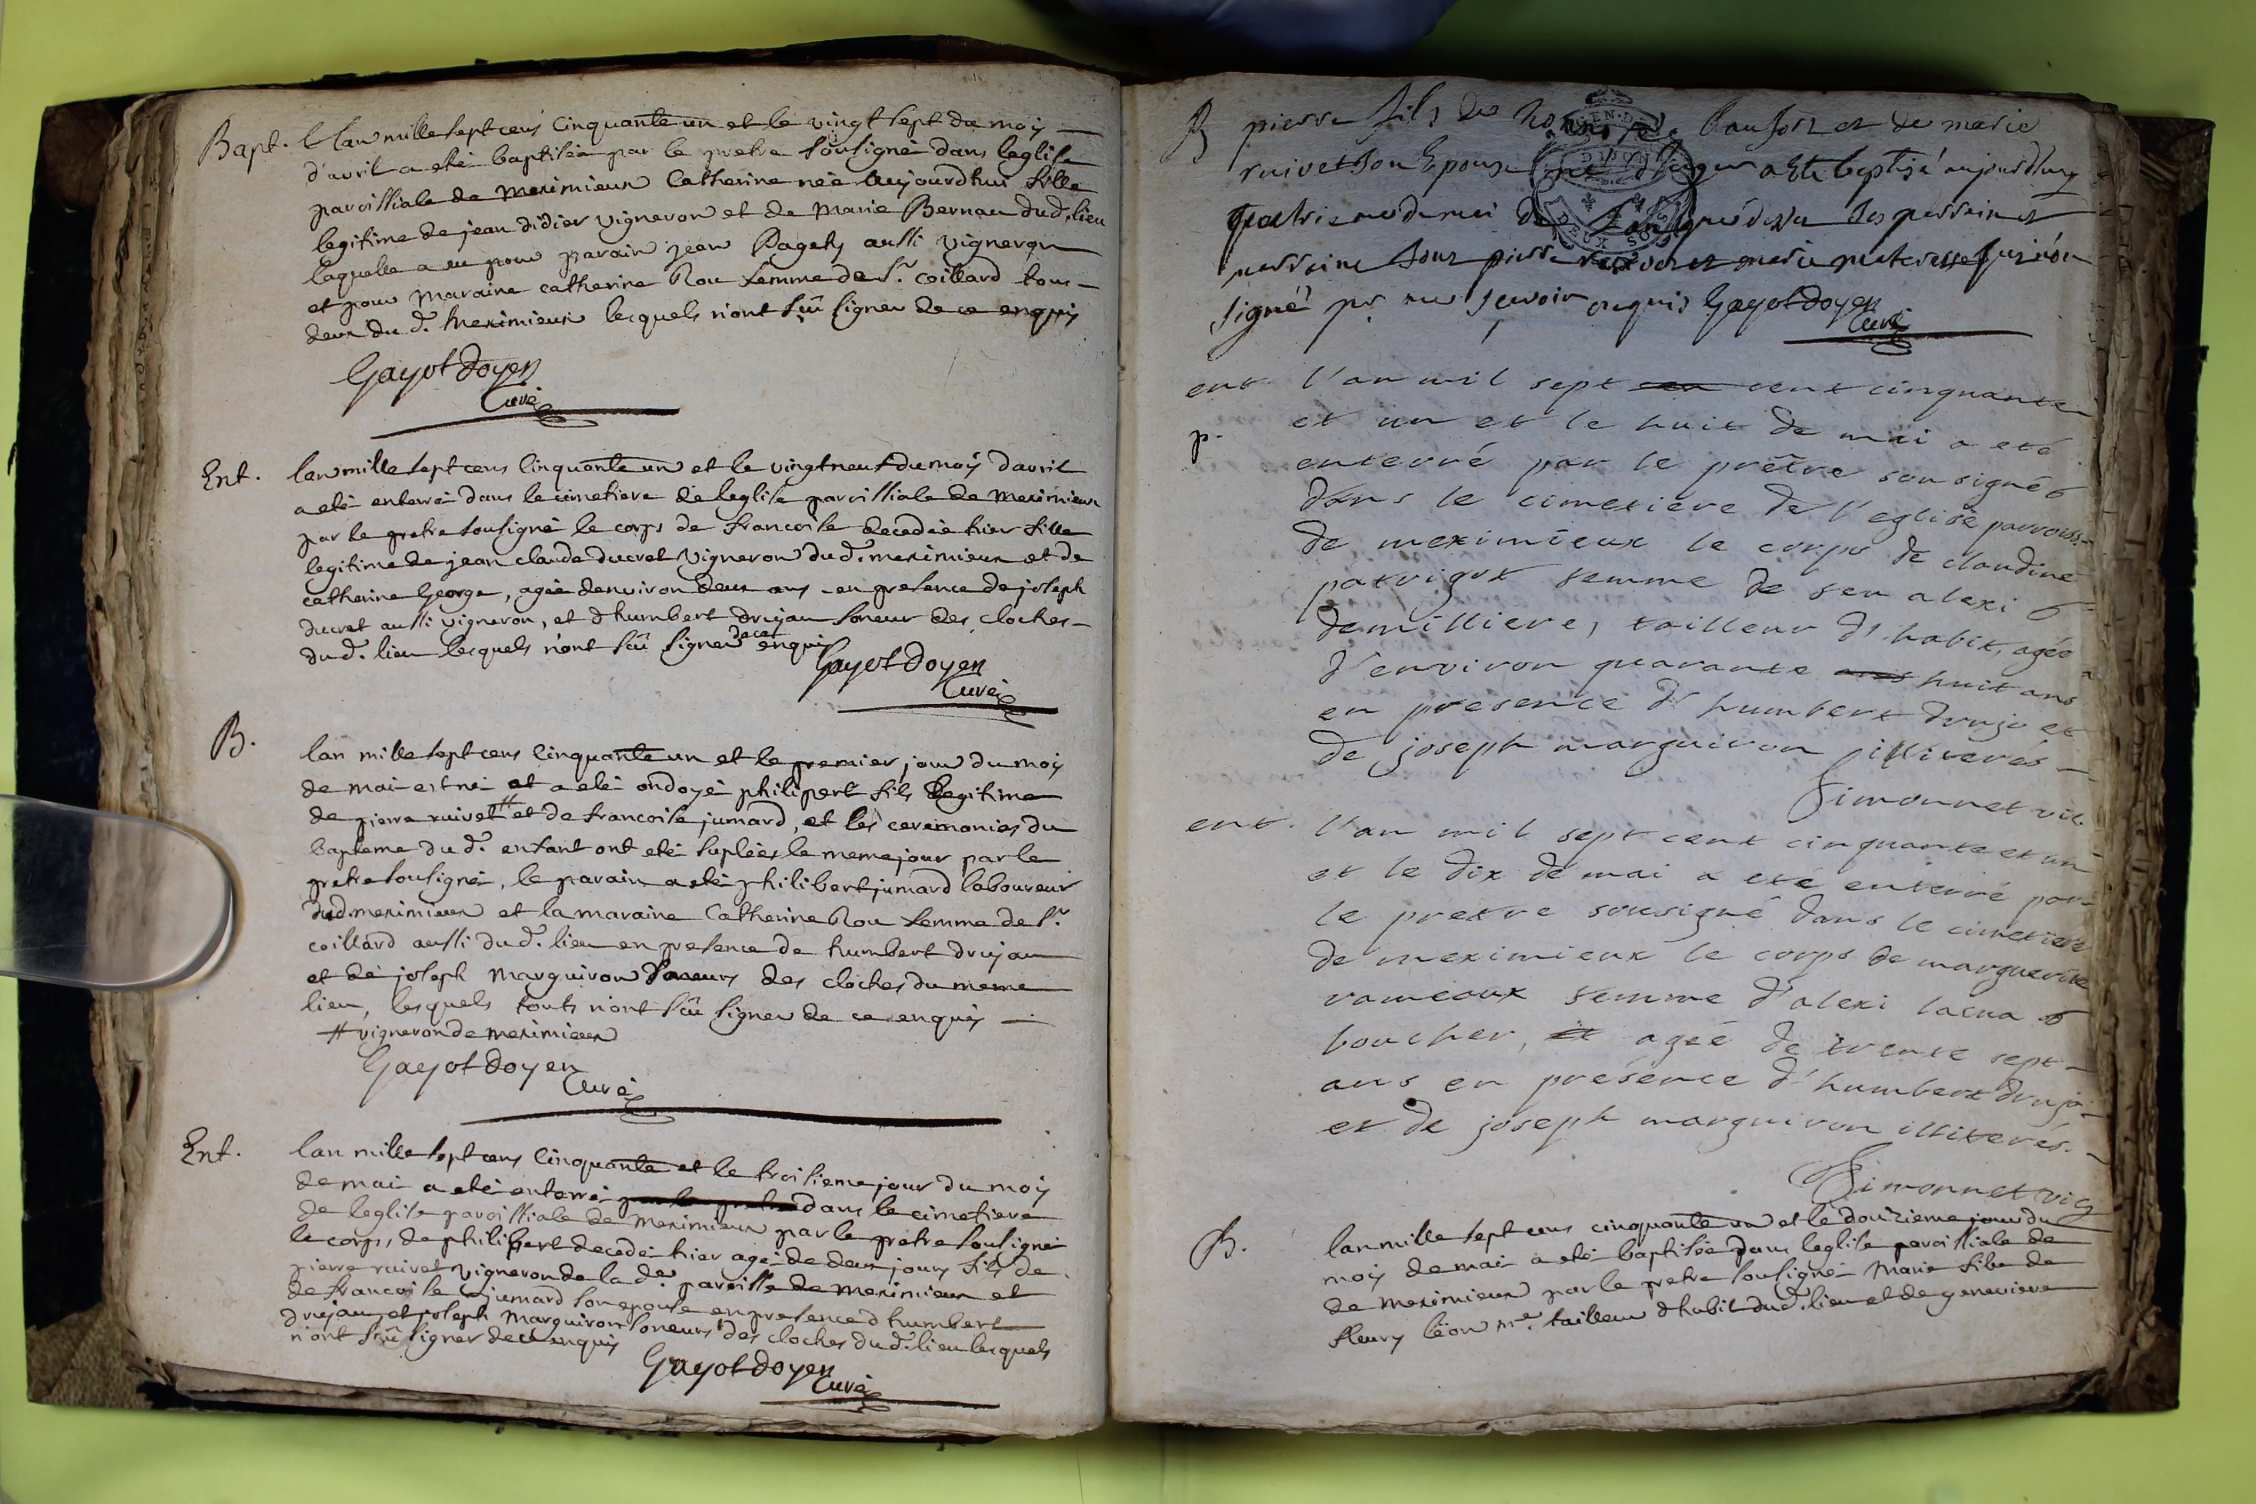 Bapt. Lan mille sept cens Cinquante un et le vingt sept du mois
d'avril a eté baptisée par le pretre sousigné dans leglise
paroissiale de meximieux Catherine née aujourdhui fille
legitime de jean didier vigneron et de Marie Bernau dud. lieu
laquelle a eu pour parain jean Pagets aussi vigneron
et pour maraine catherine Rou femme de Sr. coillard tous
deux du d. Meximieux lesquels n'ont sçû signer de ce enquis
Gayot Doyen
Curé
Ent. lan mille sept cens Cinquante un et le vingt neuf du mois d'avril
a eté enterré dans le cimetiere de leglise paroissiale de Meximieux
par le pretre sousigné le corps de francoise decedée hier fille
legitime de jean claude ducret vigneron du d. meximieux et de
catherine George, agée denviron deux ans en presence de joseph
ducret aussi vigneron, et d'humbert drujan soneur des cloches
du d. lieu lesquels n'ont sçû signer de ce enquis
Gayot Doyen
Curé
B. lan mille sept cens Cinquante un et le premier jour du mois
de mai est né et a eté ondoyé philipert fils legitime
de pierre ruivet # et de francoise jumard, et les ceremonies du
bapteme du d. enfant ont eté suplées le meme jour par le
pretre sousigné, le parain a eté philibert jumard laboureur
dud. meximieux et la maraine Catherine Rou femme de Sr.
coillard aussi du d. lieu en presence de humbert drujan
et de joseph Marguiron soneurs des cloches du meme
lieu, lesquels touts n'ont sçû signer de ce enquis
# vigneron de meximieux
Gayot Doyen
Curé
Ent. lan mille sept cens Cinquante et le troisieme jour du mois
de mai a eté enterré par le pretre dans le cimetiere
de leglise paroissiale de Meximieux par le pretre sousigné
le corps de philibert decedé hier agé de deux jours fils de
pierre ruivet vigneron de la de. paroisse de meximieux et
de francoise jumard son epouse en presence d humbert
drujan et joseph Marguiron soneurs des cloches du d. lieu lesquels
n'ont sçû signer de ce enquis
Gayot Doyen
Curé
B pierre fils de et de marie
ruivet son Epouse a Ete baptisé aujourdhuy
quatrieme de mai de Ses parrain et
marraine sont pierre et marie qui n'on
signé pr ne scavoir enquis Gayot Doyen
Curé
ent. l'an mil sept cen cent cinquante
et un et le huit de mai a eté
p. enterré par le prêtre sousigné
dans le cimetiere de l'eglise parroiss.
de meximieux le corps de claudine
patrigot femme de feu alexi
demilliere, tailleur d'habit, agée
d'environ quarante ans huit ans
en presence d'humbert drujo et
de joseph marguiron illiterés
Simonnet vic.
ent. l'an mil sept cent cinquante et un
et le dix de mai a eté enterré par
le pretre sousigné dans le cimetiere
de meximieux le corps de marguerite
rameaux femme d'alexi lacua
boucher, et agée de trente sept
ans en présence d'humbert drujo
et de joseph marguiron illiterés.
Simonnet vic
B. lan mille sept cens cinquante un et le douzieme jour du
mois de mai a eté baptisée dans leglise paroissiale de
de Meximieux par le pretre sousigné Marie fille de
fleury léon me. tailleur d'habit dud. lieu et de genevieve